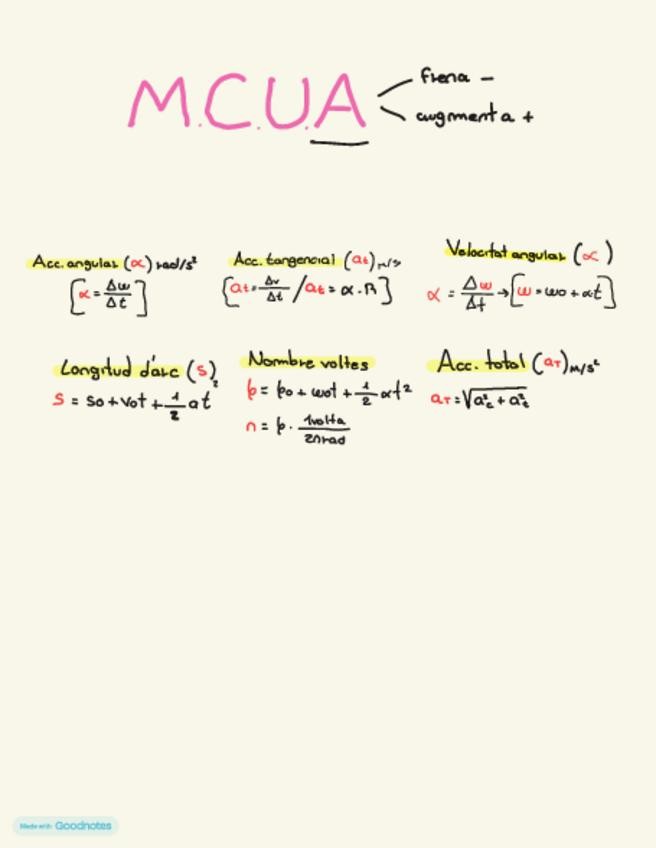 M.C.U.A
frena -
augmenta +
Acc. angular (α) rad/s²
[α = Δw/Δt]
Acc. tangencial (at) m/s
[at = Δv/Δt / at = α · R]
Velocitat angular (α)
α = Δw/Δt → [w = wo + αt]
Longitud d'arc (s)
s = so + vot + 1/2 at²
Nombre voltes
φ = φo + wot + 1/2 αt²
n = φ · 1volta/2πrad
Acc. total (aT) m/s²
aT = √a²c + a²t
Made with Goodnotes